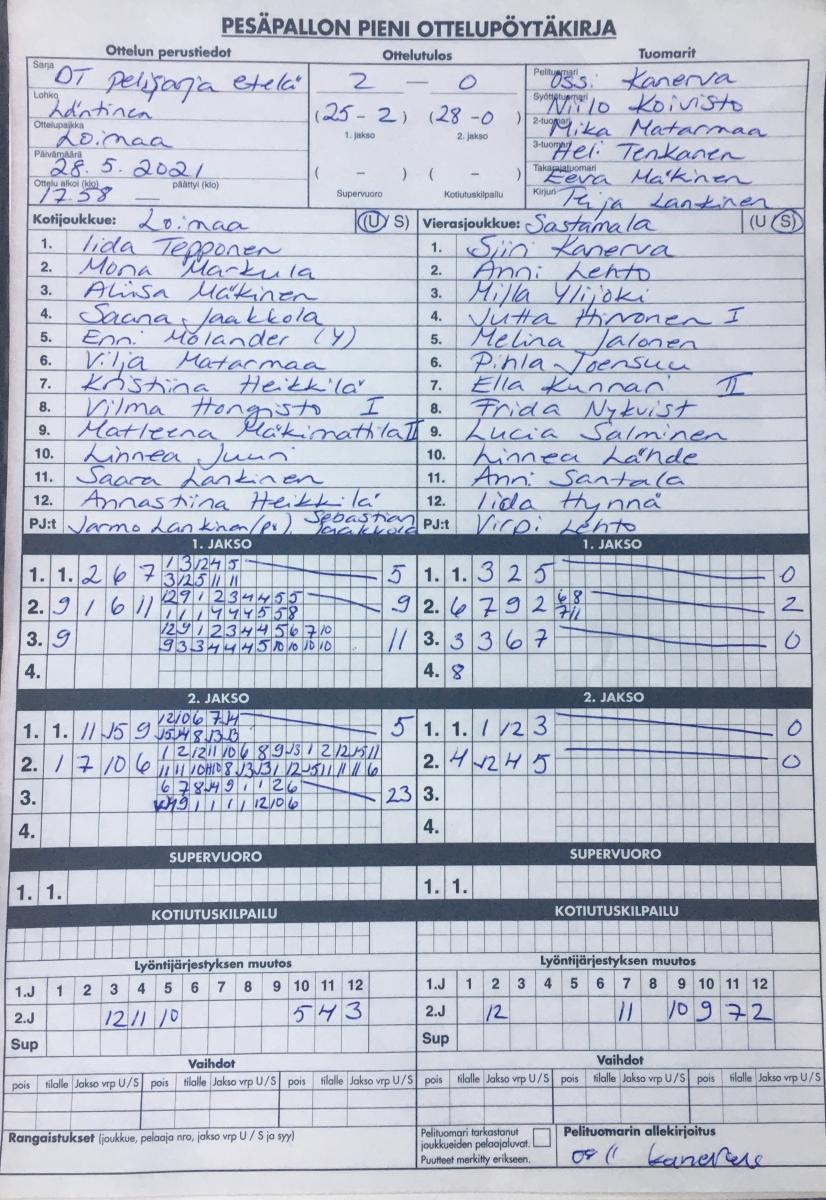 PESÄPALLON PIENI OTTELUPÖYTÄKIRJA
Ottelun perustiedot
Ottelutulos
Tuomarit
Sarja DT pelisarja etelä
Lohko Läntinen
Ottelupaikka Loimaa
Päivämäärä 28.5.2021
Ottelu alkoi (klo) 17.58 päättyi (klo) —
2 – 0
(25 – 2) (28 – 0)
1. jakso 2. jakso
( – ) ( – )
Supervuoro Kotiutuskilpailu
Pelituomari Ossi Kanerva
Syöttötuomari Niilo Koivisto
2-tuomari Mika Matarmaa
3-tuomari Heli Tenkanen
Takarajatuomari Eeva Mäkinen
Kirjuri Teija Lankinen
Kotijoukkue: Loimaa (U/S)
1. Iida Tepponen
2. Mona Markula
3. Aliisa Mäkinen
4. Saana Jaakkola
5. Enni Mölander (Y)
6. Vilja Matarmaa
7. Kristiina Heikkilä
8. Vilma Hongisto I
9. Matleena Mäkimattila II
10. Linnea Juuri
11. Saara Lankinen
12. Annastiina Heikkilä
PJ:t Jarmo Lankinen (pv), Sebastian Jaakkola
Vierasjoukkue: Sastamala (U/S)
1. Siiri Kanerva
2. Anni Lehto
3. Milla Ylijoki
4. Jutta Hirvonen I
5. Melina Jalonen
6. Pihla Joensuu
7. Ella Kunnari II
8. Frida Nykvist
9. Lucia Salminen
10. Linnea Lähde
11. Anni Santala
12. Iida Hynnä
PJ:t Virpi Lehto
1. JAKSO
1. 1. 2 6 7 1 3 12 4 5 5
3 12 5 11 11
2. 9 1 6 11 12 9 1 2 3 4 4 5 5 9
1 1 1 4 4 4 5 5 8
3. 9 12 9 1 2 3 4 4 5 6 7 10 11
9 3 3 4 4 4 5 10 10 10 10
4.
1. JAKSO
1. 1. 3 2 5 0
2. 6 7 9 2 6 8 2
7 11
3. 3 3 6 7 0
4. 8
2. JAKSO
1. 1. 11 15 9 12 10 6 7 14 5
15 14 8 13 13
2. 1 7 10 6 1 2 12 11 10 6 8 9 13 1 2 12 15 11
3. 6 7 8 14 9 1 1 2 6 23
4.
2. JAKSO
1. 1. 1 12 3 0
2. 4 12 4 5 0
3.
4.
SUPERVUORO
1. 1.
SUPERVUORO
1. 1.
KOTIUTUSKILPAILU
KOTIUTUSKILPAILU
Lyöntijärjestyksen muutos
1.J 1 2 3 4 5 6 7 8 9 10 11 12
2.J 12 11 10 5 4 3
Sup
Lyöntijärjestyksen muutos
1.J 1 2 3 4 5 6 7 8 9 10 11 12
2.J 12 11 10 9 7 2
Sup
Vaihdot
pois tilalle Jakso vrp U/S pois tilalle Jakso vrp U/S pois tilalle Jakso vrp U/S
Vaihdot
pois tilalle Jakso vrp U/S pois tilalle Jakso vrp U/S pois tilalle Jakso vrp U/S
Rangaistukset (joukkue, pelaaja nro, jakso vrp U / S ja syy)
Pelituomari tarkastanut
joukkueiden pelaajaluvat.
Puutteet merkitty erikseen.
Pelituomarin allekirjoitus
Kanerva